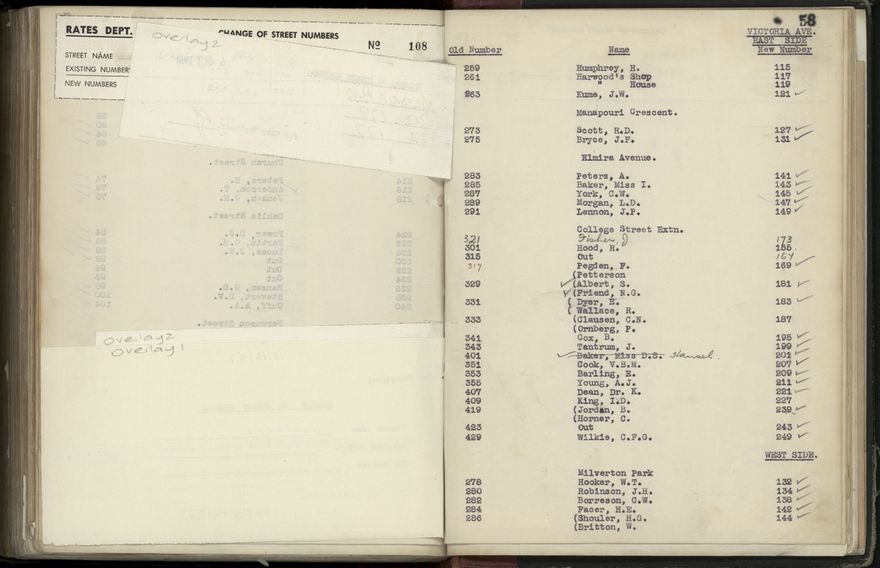 RATES DEPT.
CHANGE OF STREET NUMBERS
Nº 108
STREET NAME
EXISTING NUMBERS
NEW NUMBERS
Overlay 2
Overlay 2
Overlay 1
58
VICTORIA AVE.
EAST SIDE
Old Number Name New Number
259 Humphrey, H. 115
261 Harwood's Shop 117
" House 119
263 Kume, J.W. 121
Manapouri Crescent.
273 Scott, R.D. 127
275 Bryce, J.F. 131
Elmira Avenue.
283 Peters, A. 141
285 Baker, Miss I. 143
287 York, C.W. 145
289 Morgan, L.D. 147
291 Lennon, J.P. 149
College Street Extn.
321 Fisher, J. 173
301 Hood, R. 155
315 Out 164
317 Pegden, F. 169
(Petterson
329 (Albert, S. 181
(Friend, N.G.
331 ( Dyer, E. 183
( Wallace, R.
333 (Clausen, C.N. 187
(Ornberg, P.
341 Cox, B. 195
343 Tantrum, J. 199
401 Baker, Miss D.S. Hansel. 201
351 Cook, V.B.M. 207
353 Barling, E. 209
355 Young, A.J. 211
407 Dean, Dr. K. 221
409 King, I.D. 227
419 (Jordan, B. 239
(Horner, C.
423 Out 243
429 Wilkie, C.F.G. 249
WEST SIDE.
Milverton Park
278 Hooker, W.T. 132
280 Robinson, J.H. 134
282 Borreson, C.W. 138
284 Facer, H.E. 142
286 (Shouler, H.G. 144
(Britton, W.